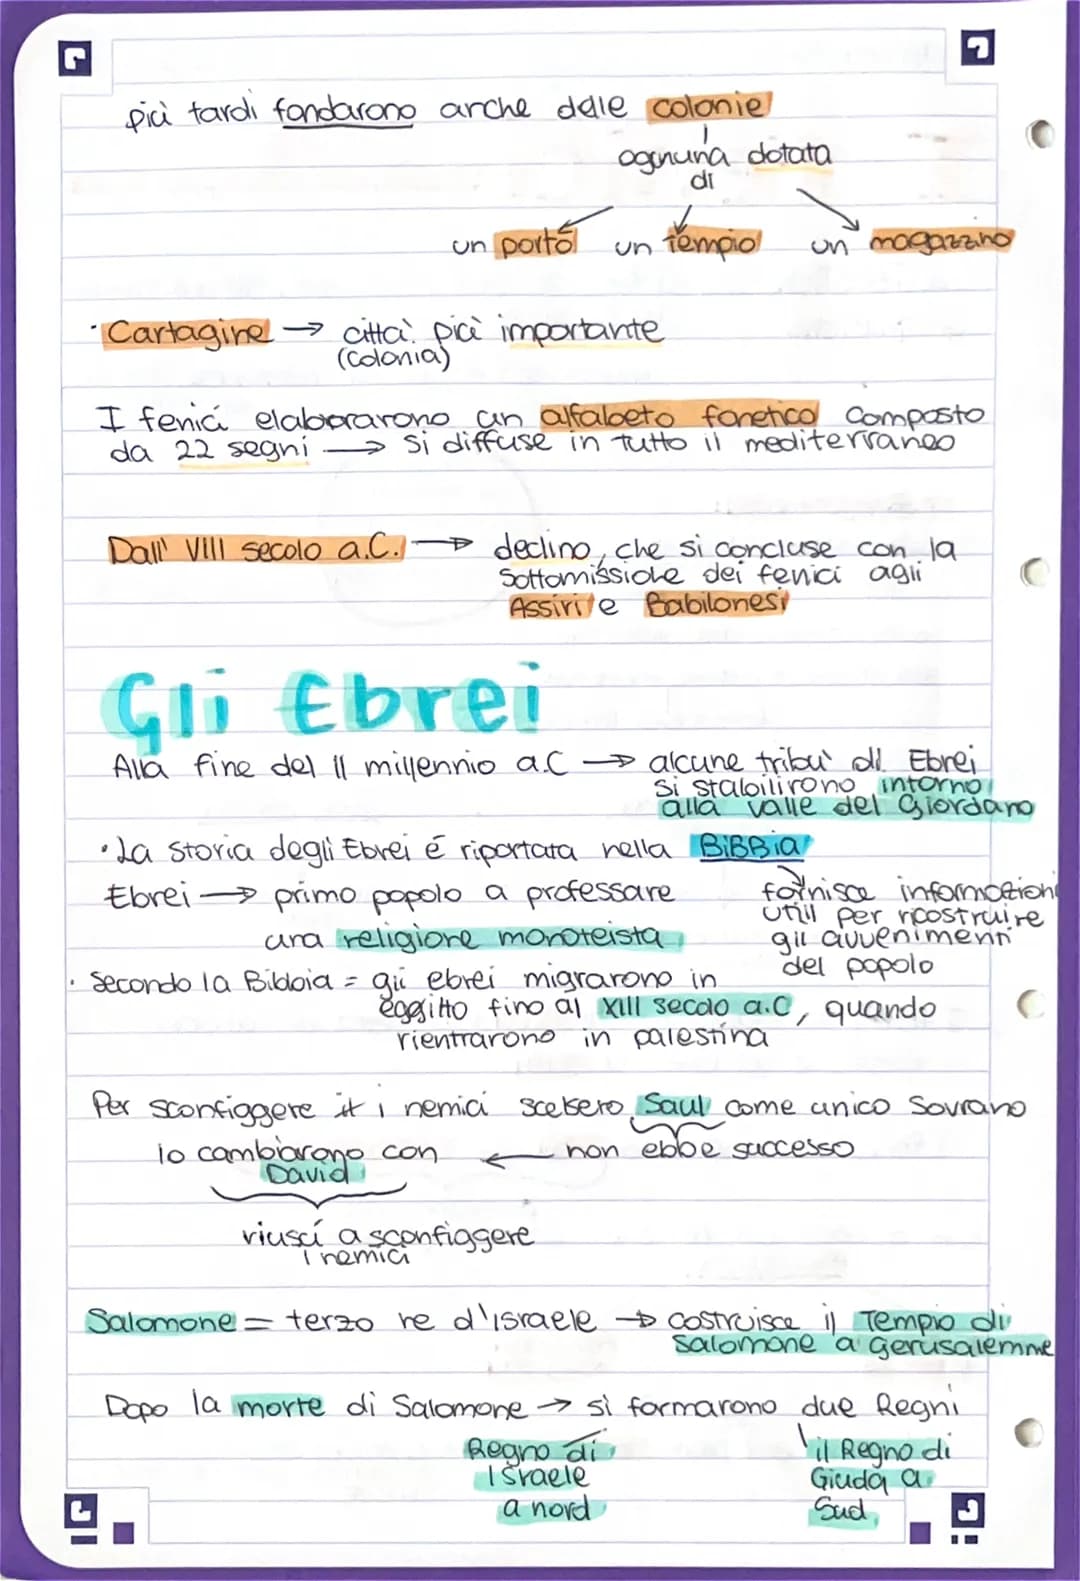 più tardi fondarono anche delle colonie
ognuna dotata
di
un porto un tempio un magazzino
· Cartagine → città più importante
(colonia)
I fenici elaborarono un alfabeto fonetico composto
da 22 segni → si diffuse in tutto il mediterraneo
Dall' VIII secolo a.C. → declino, che si concluse con la
sottomissione dei fenici agli
Assiri e Babilonesi
Gli Ebrei
Alla fine del II millennio a.C → alcune tribù di Ebrei
si stabilirono intorno
alla valle del Giordano
· La storia degli Ebrei é riportata nella BiBBia
Ebrei → primo popolo a professare
una religione monoteista
fornisce informazioni
utili per ricostruire
gli avvenimenti
del popolo
· Secondo la Bibbia = gli ebrei migrarono in
eggitto fino al XIII secolo a.C, quando
rientrarono in palestina
Per sconfiggere i nemici scelsero Saul come unico sovrano
lo cambiarono con ← non ebbe successo
David
riuscí a sconfiggere
i nemici
Salomone = terzo re d'israele → costruisce il Tempio di
Salomone a gerusalemme
Dopo la morte di Salomone → si formarono due Regni
Regno di
Israele
a nord
il Regno di
Giuda a
Sud